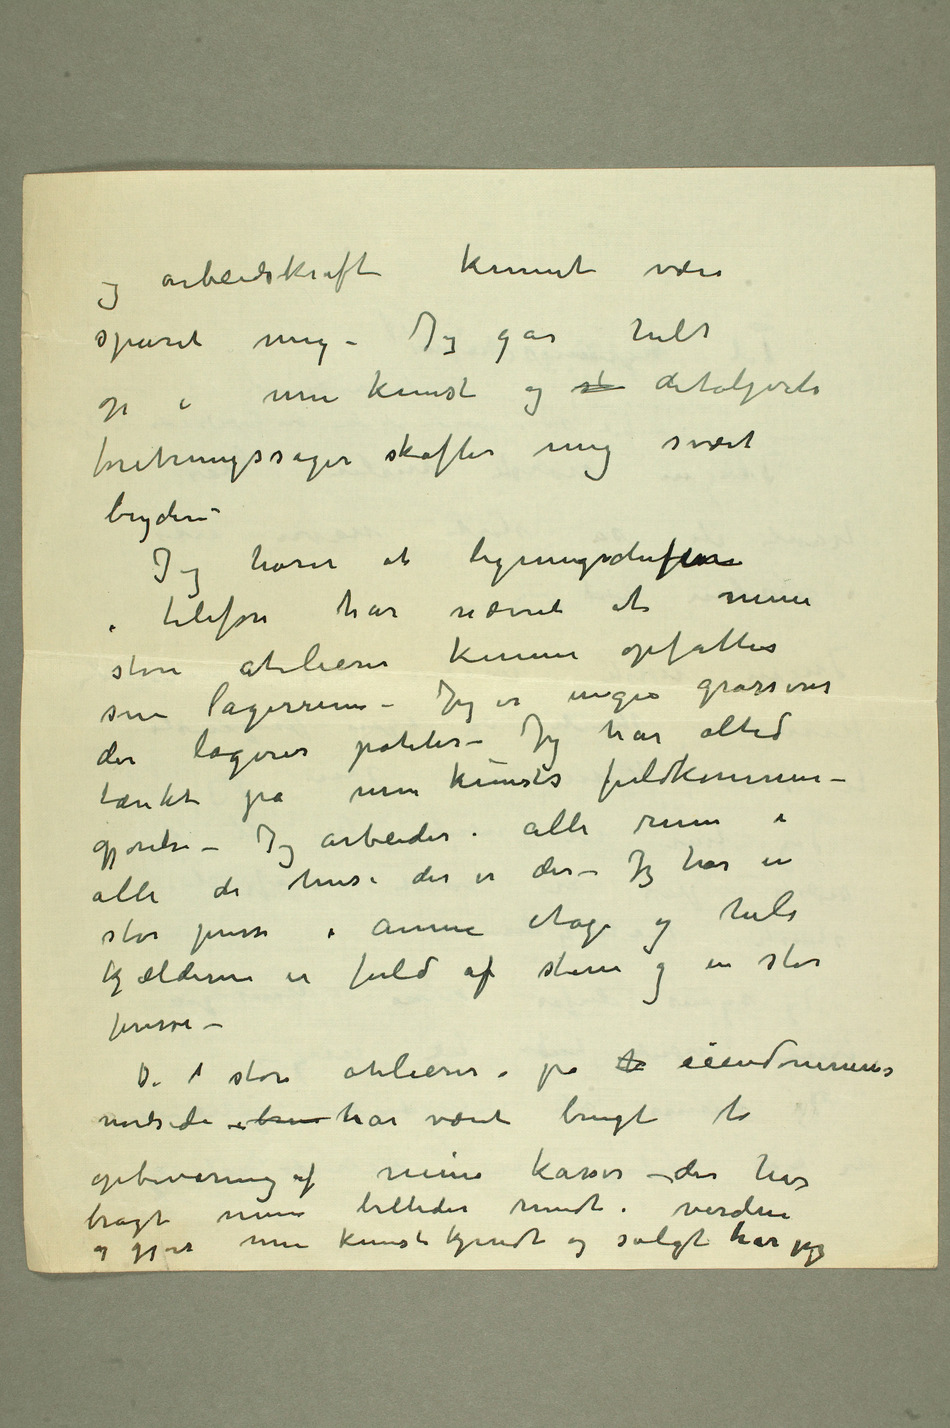 og arbeidskraft kunnet være
sparet mig – Jeg går helt
op i min kunst og st detaljerte
foretningssager skaffer mig svært
bryderi –
Jeg hører at ligningschefen
i telefon har nævnt at mine
store atelierer kunne opfattes
som lagerrum – Jeg er ingen grosserer
der lagerer poteter – Jeg har altid
tænkt på min kunsts fuldkommen-
gjørelse – Jeg arbeider i alle rum i
alle de huse der er der – Jeg har en
stor presse i annen etage og hele
kjælderen er fuld af stene og en stor
presse –
De store atelierer på eiendommens
nordside har været brugt to
opbevaring af mine kasser – der har
bragt mine billeder rundt i verden
og gjort min kunst kjendt og solgt har jeg